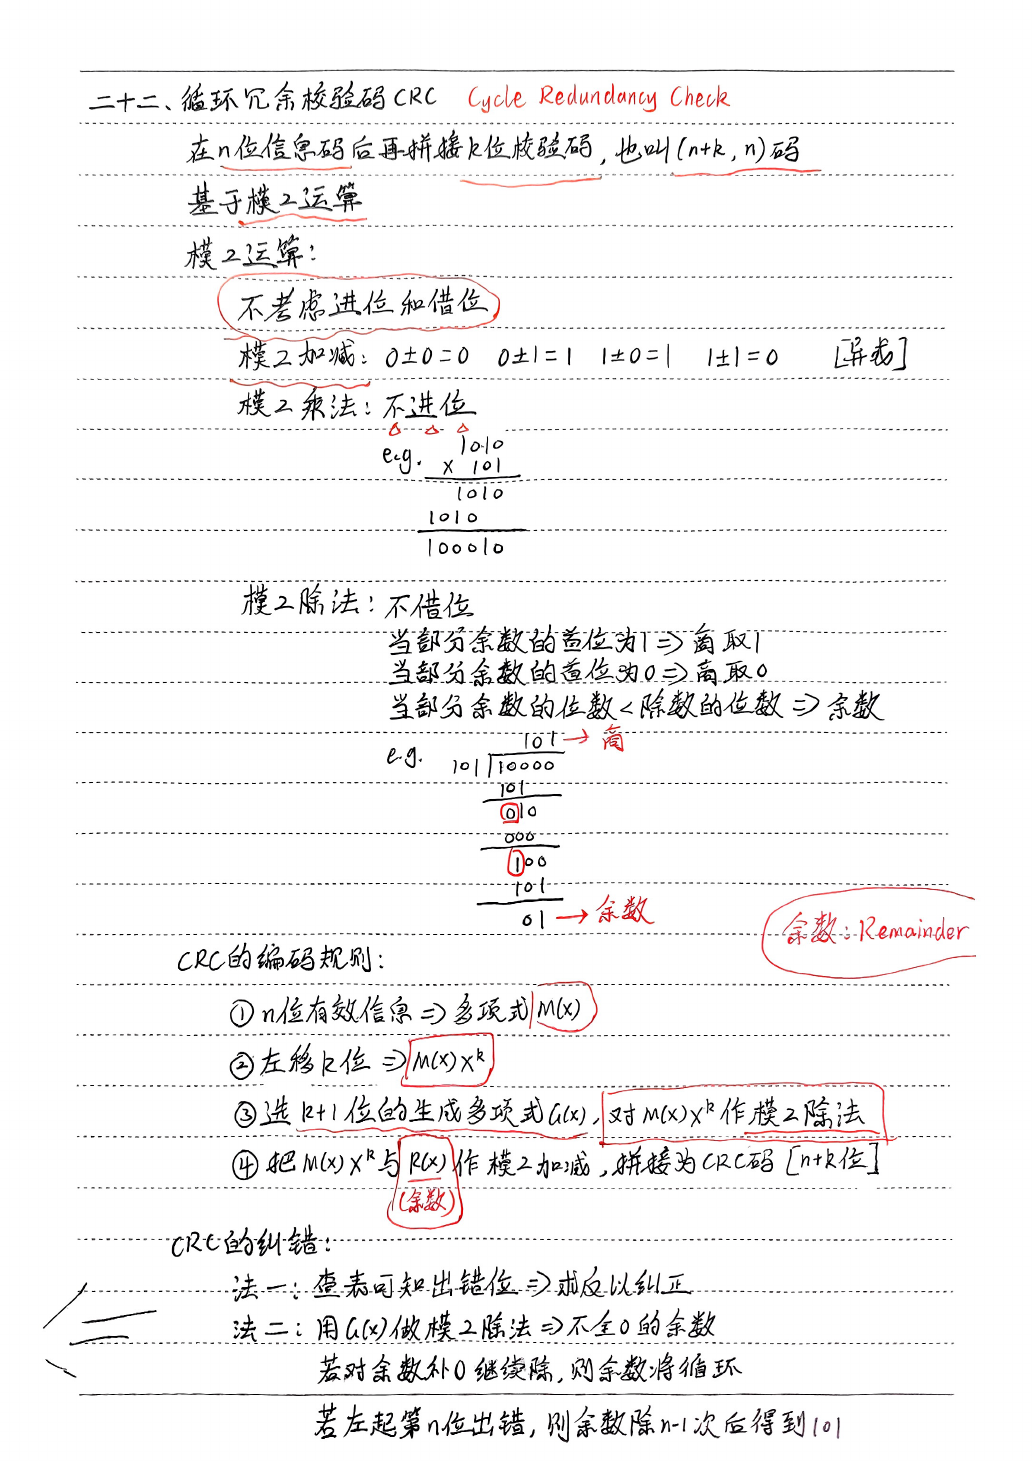 二十二、循环冗余校验码CRC Cycle Redundancy Check
在n位信息码后再拼接k位校验码,也叫(n+k,n)码
基于模2运算
模2运算:
不考虑进位和借位
模2加减: 0±0=0 0±1=1 1±0=1 1±1=0 [异或]
模2乘法:不进位
e.g. 1010
x 101
1010
1010
100010
模2除法:不借位
当部分余数的首位为1⇒商取1
当部分余数的首位为0⇒商取0
当部分余数的位数<除数的位数⇒余数
101→商
e.g. 101 10000
101
010
000
100
101
01→余数
余数:Remainder
CRC的编码规则:
①n位有效信息⇒多项式M(x)
②左移k位⇒M(x)x^k
③选k+1位的生成多项式G(x),对M(x)x^k作模2除法
④把M(x)x^k与R(x)作模2加减,拼接为CRC码[n+k位]
(余数)
CRC的纠错:
法一:查表可知出错位⇒求反以纠正
法二:用G(x)做模2除法⇒不全0的余数
若对余数补0继续除,则余数将循环
若左起第n位出错,则余数除n-1次后得到101